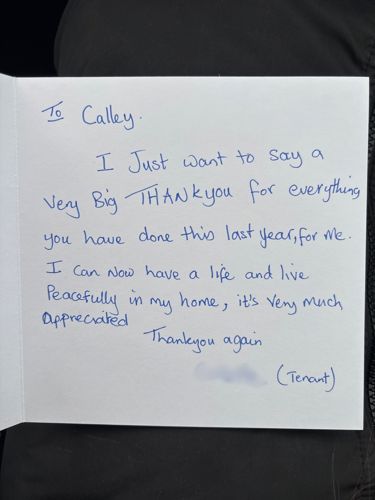 To Calley.
I Just want to say a
Very Big THANKyou for everything
you have done this last year, for me.
I can now have a life and live
Peacefully in my home, it's very much
appreciated
Thankyou again
(Tenant)